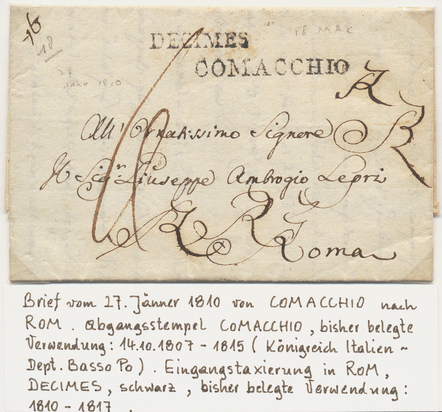 DECIMES
COMACCHIO
All' Ornatissimo Signore
Il Sigr Giuseppe Ambrogio Lepri
Roma
Brief vom 27. Jänner 1810 von COMACCHIO nach
ROM. Abgangsstempel COMACCHIO, bisher belegte
Verwendung: 14.10.1807 - 1815 (Königreich Italien ~
Dept. Basso Po). Eingangstaxierung in ROM,
DECIMES, schwarz, bisher belegte Verwendung:
1810 - 1817.